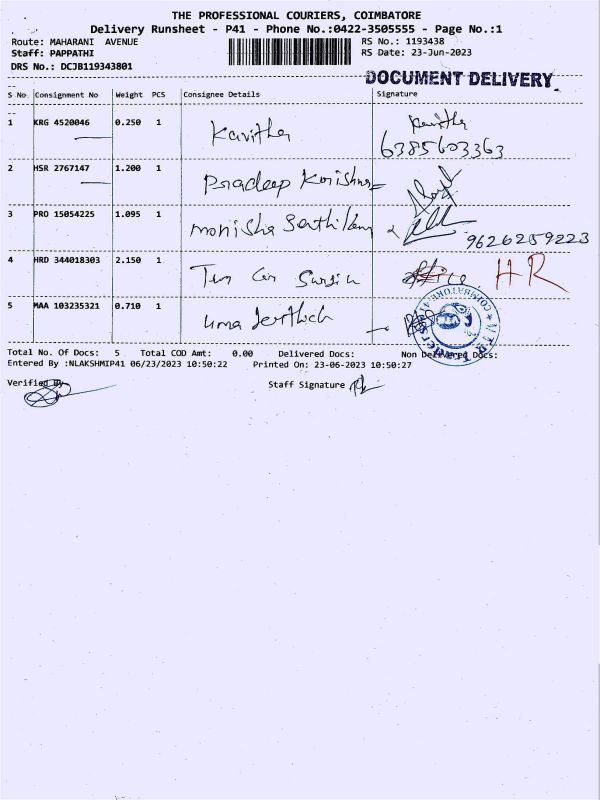 THE PROFESSIONAL COURIERS, COIMBATORE
Delivery Runsheet - P41 - Phone No.:0422-3505555 - Page No.:1
Route: MAHARANI AVENUE RS No.: 1193438
Staff: PAPPATHI RS Date: 23-Jun-2023
DRS No.: DCJB119343801
DOCUMENT DELIVERY
S No. Consignment No Weight PCS Consignee Details Signature
1 KRG 4520046 0.250 1 Kavitha Kavitha
6385603363
2 HSR 2767147 1.200 1 Pradeep Krishna
3 PRO 15054225 1.095 1 Monisha
9626259223
4 HRD 344018303 2.150 1 HR
5 MAA 103235321 0.710 1 Uma
Total No. Of Docs: 5 Total COD Amt: 0.00 Delivered Docs: Non Delivered Docs:
Entered By :NLAKSHMIP41 06/23/2023 10:50:22 Printed On: 23-06-2023 10:50:27
Verified By Staff Signature